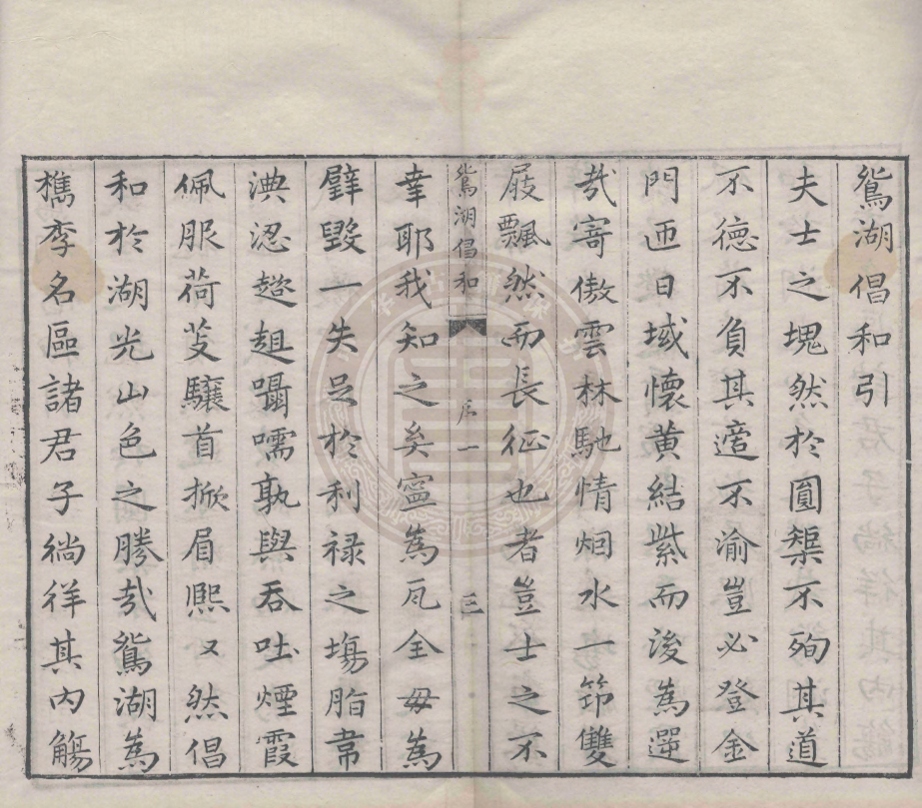 鴛湖倡和引
夫士之塊然於圓椝不殉其道
不徳不負其適不渝豈必登金
門迊日域懷黄結紫而後為遝
㢤寄傲雲林馳情烟水一笻雙
屐飄然而長征也者豈士之不
鴛湖倡和
序一
三
幸耶我知之矣寧為瓦全毋為
璧毀一失足於利禄之塲脂韋
淟涊趦趄囁嚅孰與吞吐煙霞
佩服荷芰驤首掀眉熙々然倡
和於湖光山色之勝㢤鴛湖為
檇李名區諸君子徜徉其内觴